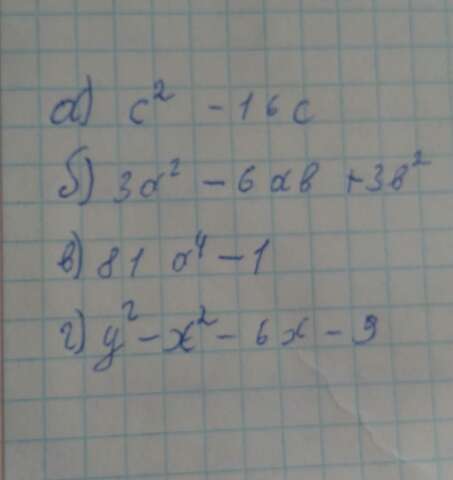 а) c² - 16c
б) 3a² - 6ab + 3b²
в) 81 a⁴ - 1
г) y² - x² - 6x - 9